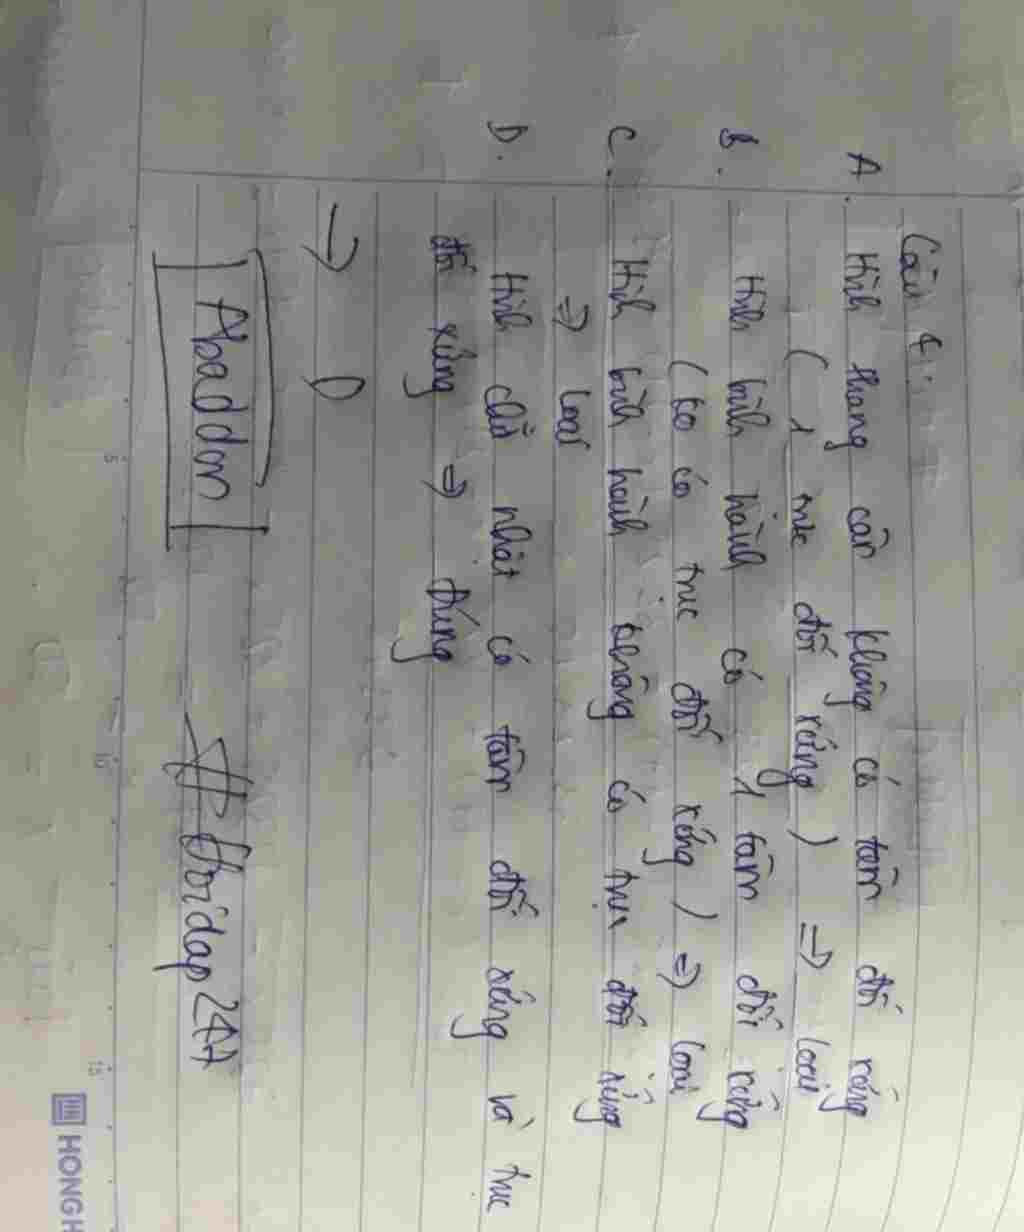 Câu 4:
A. Hình thang cân không có tâm đối xứng
( 1 trục đối xứng ) => loại
B. Hình bình hành có 1 tâm đối xứng
(ko có trục đối xứng ) => loại
C. Hình bình hành không có trục đối xứng
=> loại
D. Hình chữ nhật có tâm đối xứng và trục
đối xứng => Đúng
→ D
Abaddon
#Hoidap24H
5
10
15
HONGH